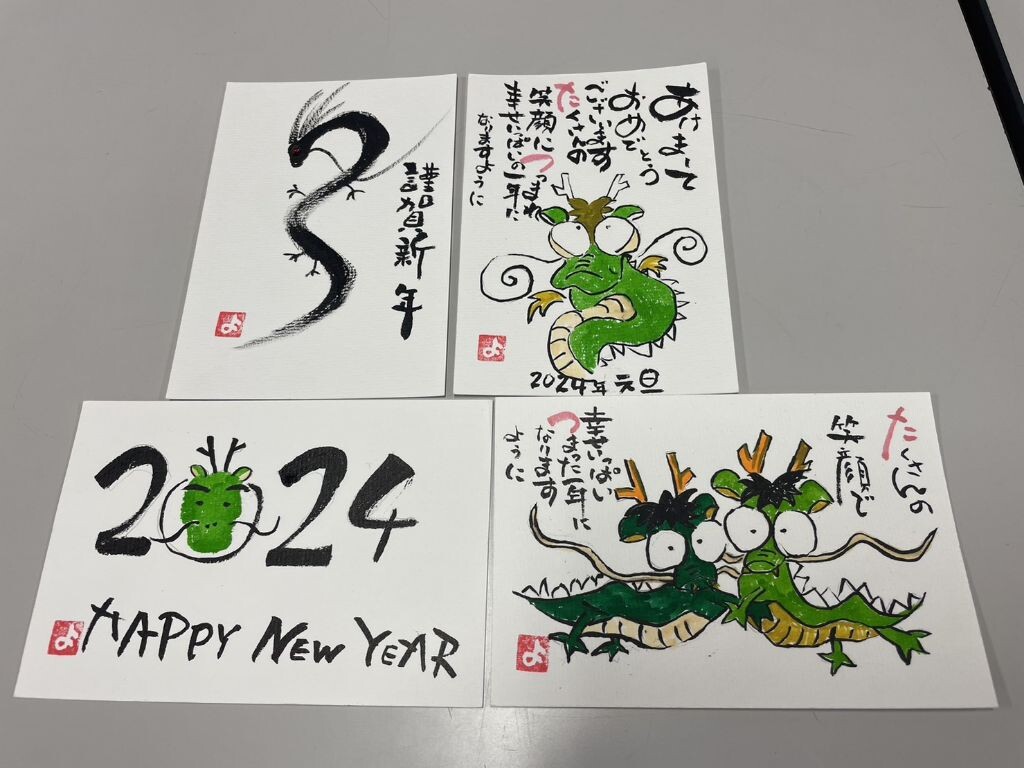 謹賀新年
よ
あけまして
おめでとう
ございます
たくさんの
笑顔に つつまれ
幸せいっぱいの一年に
なりますように
よ
2024年 元旦
2024
HAPPY NEW YEAR
よ
たくさんの
笑顔で
幸せいっぱい
つまった一年に
なります
ように
よ